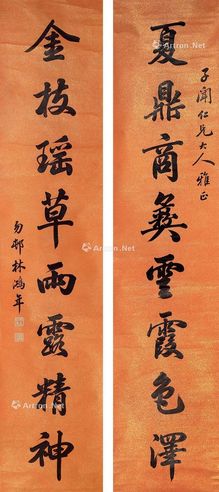 子聞仁兄大人雅正
夏鼎商彝雲霞色澤
金枝瑶草雨露精神
勿邨林鴻年
Artron.Net